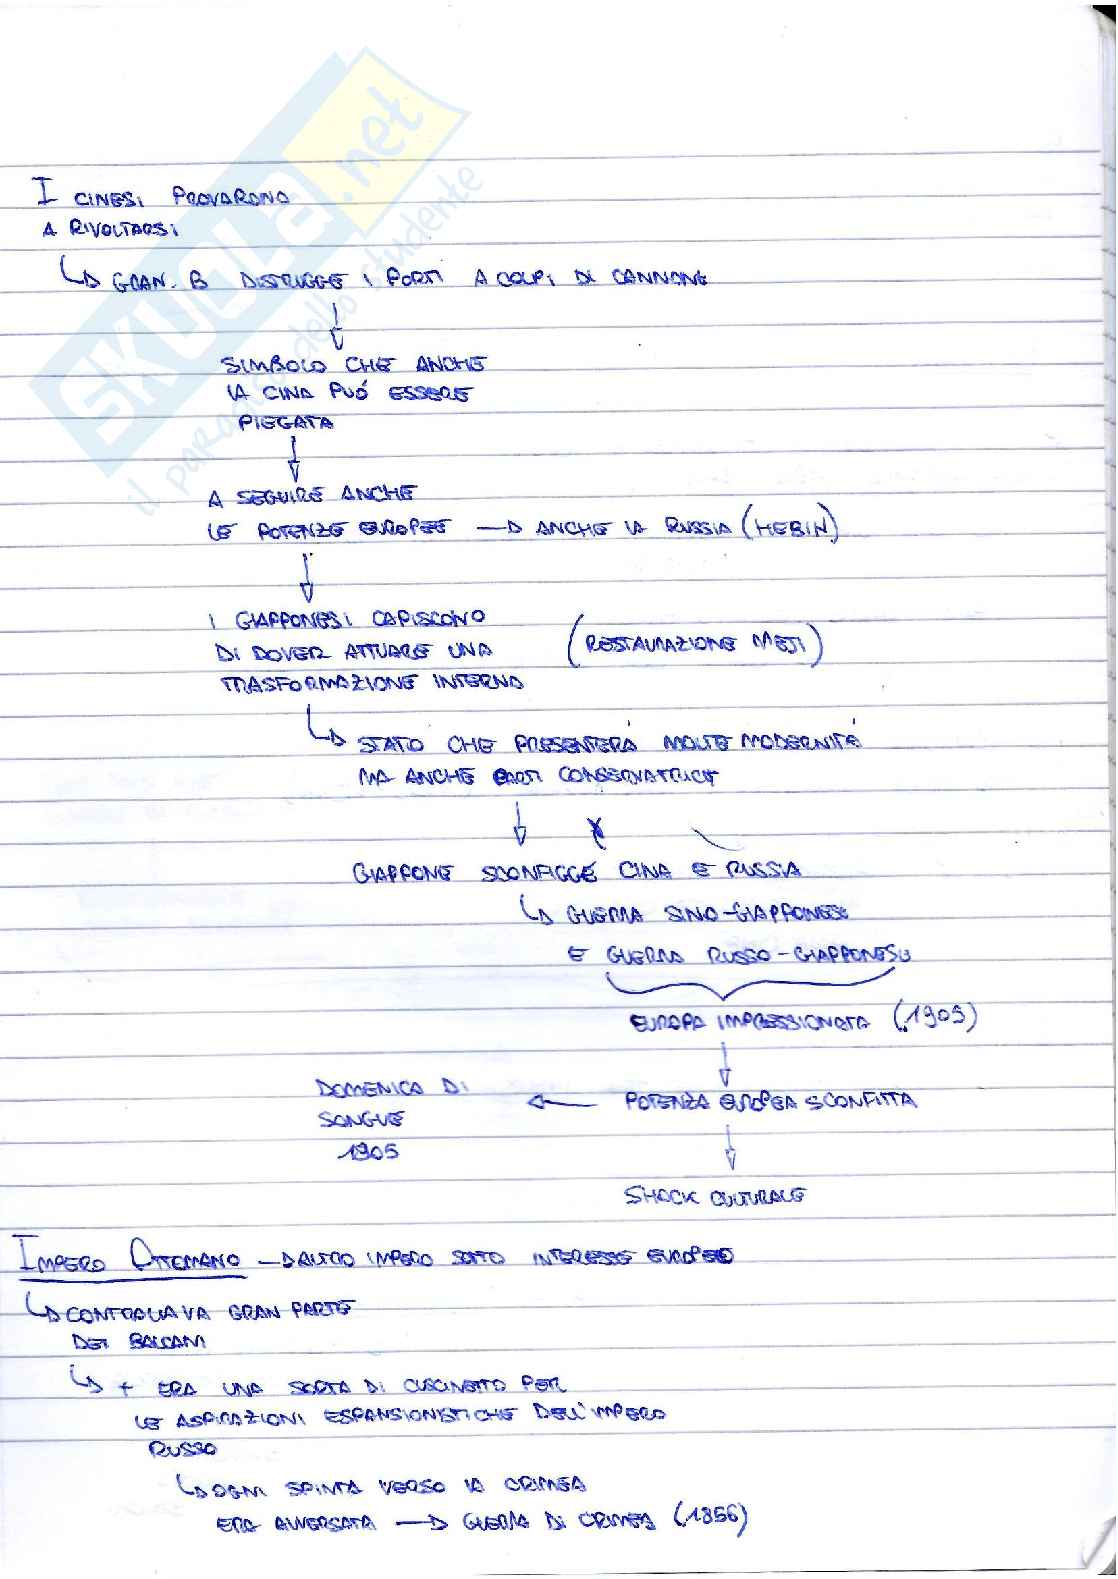 SKUOLA.net
il paradiso dello studente
I CINESI PROVARONO
A RIVOLTARSI
GRAN. B DISTRUGGE I PORTI A COLPI DI CANNONE
SIMBOLO CHE ANCHE
LA CINA PUÓ ESSERE
PIEGATA
A SEGUIRE ANCHE
LE POTENZE EUROPEE → ANCHE LA RUSSIA (HEBIN)
I GIAPPONESI CAPISCONO
DI DOVER ATTUARE UNA (RESTAURAZIONE MEJI)
TRASFORMAZIONE INTERNA
STATO CHE PRESENTERÁ MOLTE MODERNITÁ
MA ANCHE PARTI CONSERVATRICI
GIAPPONE SCONFIGGE CINA E RUSSIA
GUERRA SINO-GIAPPONESE
E GUERRA RUSSO-GIAPPONESE
EUROPA IMPRESSIONATA (1905)
DOMENICA DI ← POTENZA EUROPEA SCONFITTA
SANGUE
1905
SHOCK CULTURALE
IMPERO OTTOMANO → ALTRO IMPERO SOTTO INTERESSE EUROPEO
CONTROLLAVA GRAN PARTE
DEI BALCANI
+ ERA UNA SORTA DI CUSCINETTO PER
LE ASPIRAZIONI ESPANSIONISTICHE DELL'IMPERO
RUSSO
OGNI SPINTA VERSO LA CRIMEA
ERA AVVERSATA → GUERRA DI CRIMEA (1856)